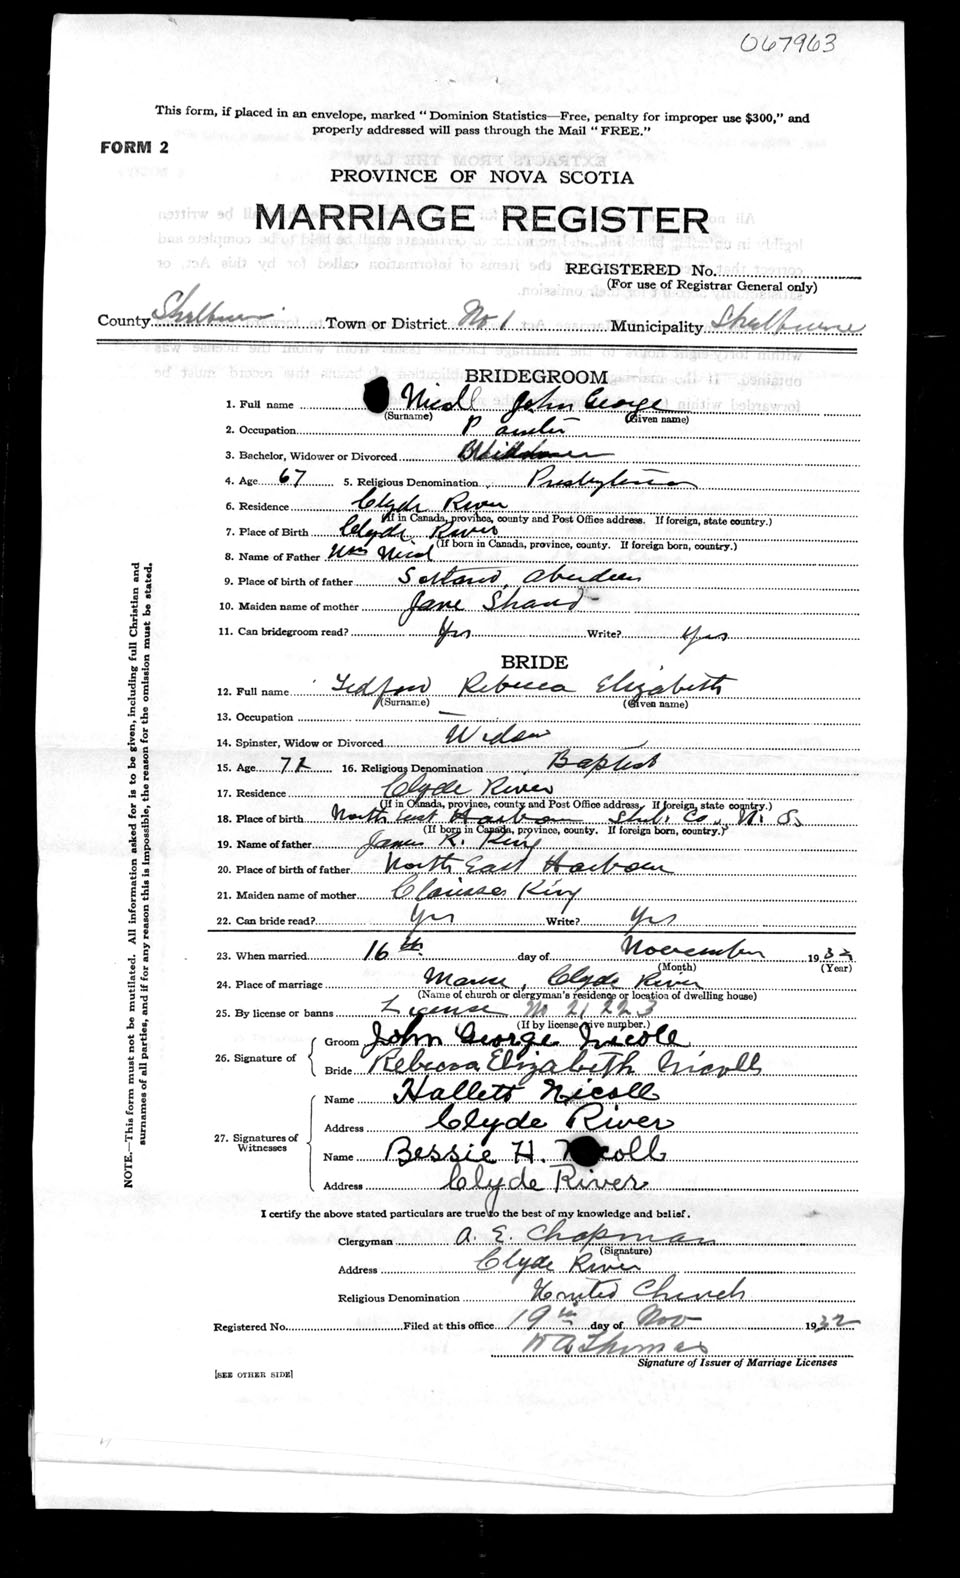 067963
This form, if placed in an envelope, marked "Dominion Statistics—Free, penalty for improper use $300," and
properly addressed will pass through the Mail "FREE."
FORM 2
PROVINCE OF NOVA SCOTIA
MARRIAGE REGISTER
REGISTERED No.
(For use of Registrar General only)
County Shelburne Town or District No 1 Municipality Shelburne
BRIDEGROOM
1. Full name Nicoll John George
(Surname) (Given name)
2. Occupation Painter
3. Bachelor, Widower or Divorced
4. Age 67 5. Religious Denomination Presbyterian
6. Residence Clyde River
(If in Canada, province, county and Post Office address. If foreign, state country.)
7. Place of Birth Clyde River
(If born in Canada, province, county. If foreign born, country.)
8. Name of Father Wm Nicol
9. Place of birth of father Scotland, Aberdeen
10. Maiden name of mother Jane Shand
11. Can bridegroom read? Yes Write? Yes
BRIDE
12. Full name Tedford Rebecca Elizabeth
(Surname) (Given name)
13. Occupation —
14. Spinster, Widow or Divorced Widow
15. Age 72 16. Religious Denomination Baptist
17. Residence Clyde River
(If in Canada, province, county and Post Office address, If foreign, state country.)
18. Place of birth North East Harbour Shel. Co., N. S.
(If born in Canada, province, county. If foreign born, country.)
19. Name of father James R. King
20. Place of birth of father North East Harbour
21. Maiden name of mother King
22. Can bride read? Yes Write? Yes
23. When married 16th day of November 1932
(Month) (Year)
24. Place of marriage Manse, Clyde River
(Name of church or clergyman's residence or location of dwelling house)
25. By license or banns License No 21223
(If by license give number.)
26. Signature of
Groom John George Nicoll
Bride Rebecca Elizabeth Nicoll
27. Signatures of Witnesses
Name Hallett Nicoll
Address Clyde River
Name Bessie H. Nicoll
Address Clyde River
I certify the above stated particulars are true to the best of my knowledge and belief.
Clergyman A. E. Chapman
(Signature)
Address Clyde River
Religious Denomination United Church
Registered No. Filed at this office 19th day of Nov 1932
W A Thomas
Signature of Issuer of Marriage Licenses
[SEE OTHER SIDE]
NOTE.—This form must not be mutilated. All information asked for is to be given, including full Christian and
surnames of all parties, and if for any reason this is impossible, the reason for the omission must be stated.